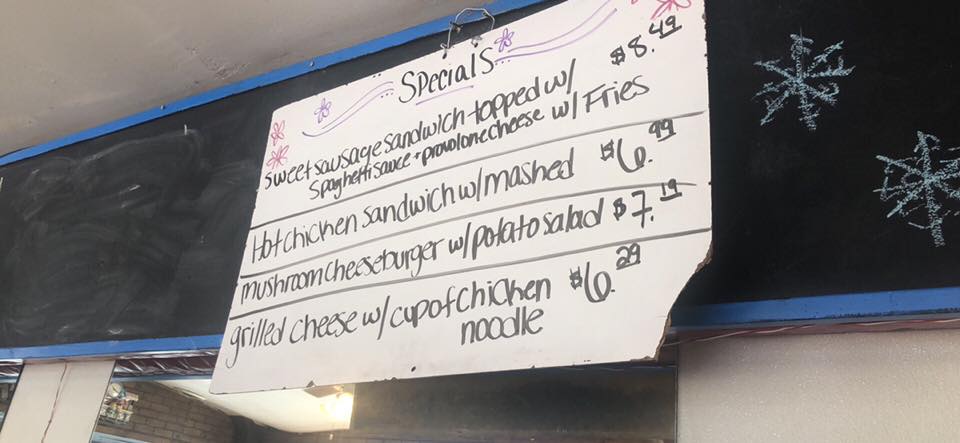 Specials
sweet sausage sandwich topped w/ $8.49
spaghetti sauce + provolone cheese w/ Fries
Hot chicken sandwich w/ mashed $6.99
mushroom cheeseburger w/ potato salad $7.19
grilled cheese w/ cup of chicken $6.29
noodle